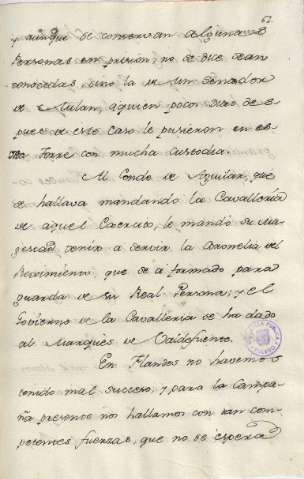 62.
y aunque se conservan algunas
Personas en prision, no se dice sean
conocidas, sino la de un Senador
de Milan, a quien pocos dias des
pues de este caso le pusieron en es
ta Torre con mucha custodia.
Al Conde de Aguilar, que
se hallava mandando la Cavalleria
de aquel Exercito, le mandó su Ma
gestad venir a servir la Coronelia del
Regimiento, que se a formado para
guarda de su Real Persona; y el
Govierno de la Cavalleria se ha dado
al Marques de Valdefuentes.
En Flandes no havemos
tenido mal suceso; y para la Campa
ña presente nos hallamos con tan com
petentes fuerzas, que no se espera